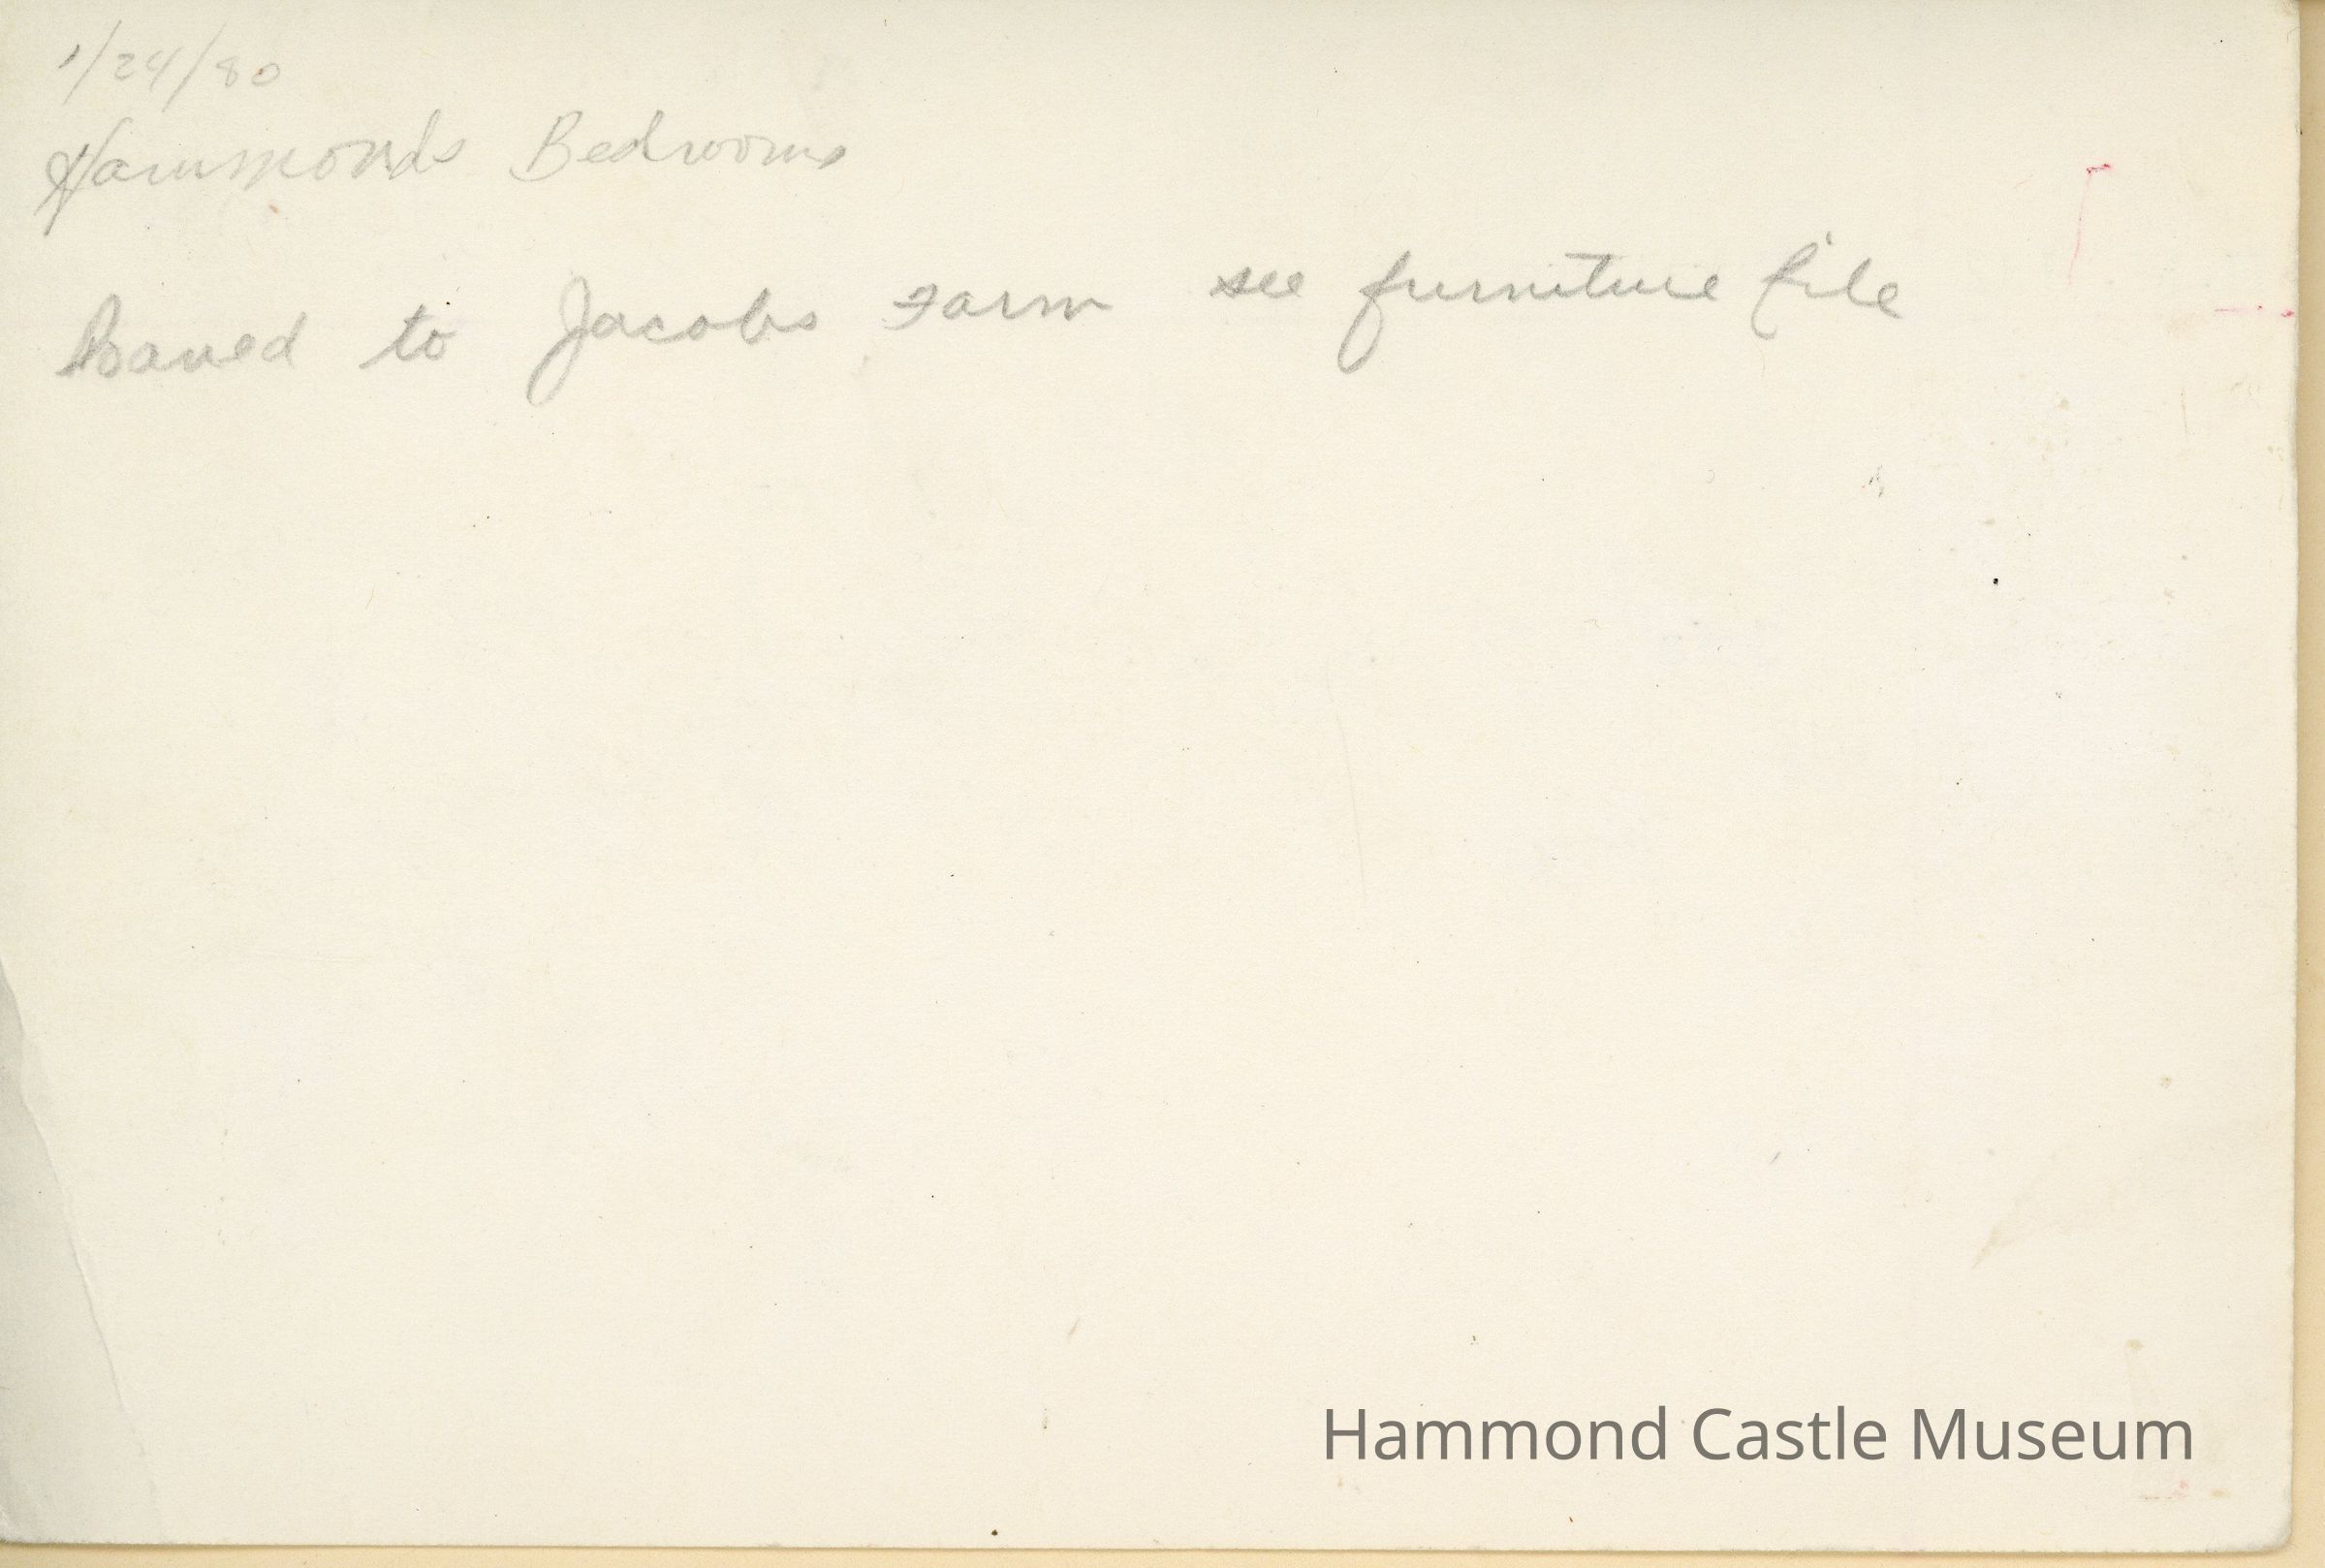 1/24/80
Hammonds Bedrooms
to Jacobs Farm see furniture file
Hammond Castle Museum